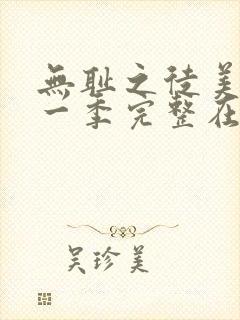 無耻之徒美
一季完整在
吴珍美